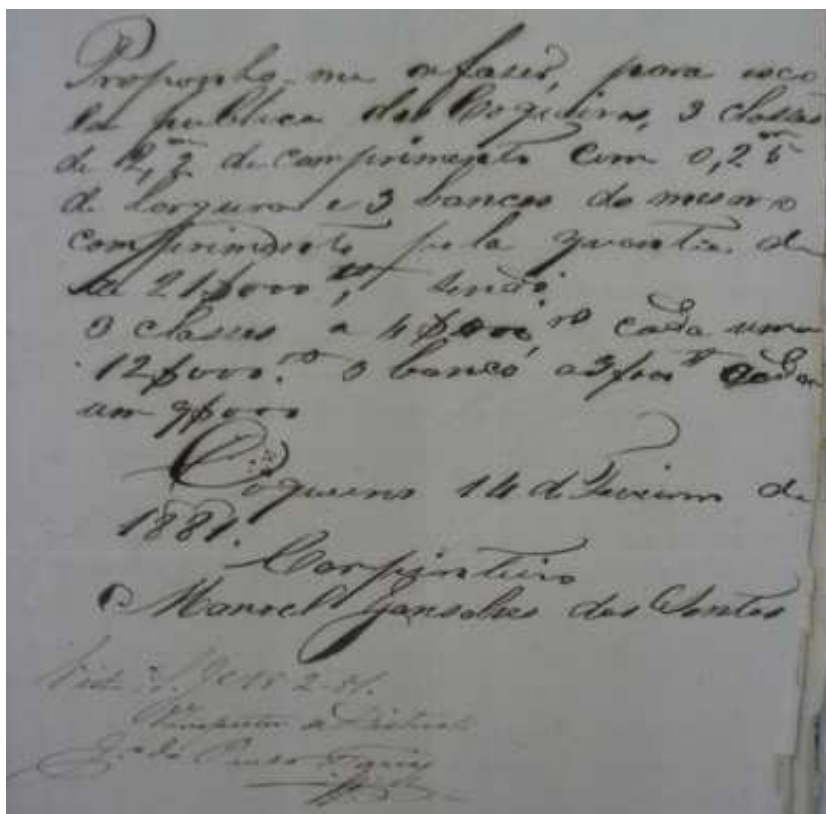 Proponho-me a faser, para esco
la publica dos Coqueiros, 3 classes
de 2,m2 de comprimento com 0,m25
de largura e 3 bancos do mesmo
comprimento pela quantia de
de 21$000 rs, sendo:
3 classes a 4$000 rs cada uma
12$000. rs 3 banco, a 3$000 rs cada
um 9$000
Coqueiros 14 de Fevereiro de
1881.
Carpinteiro
Manoel Gonsalves dos Santos
15-2-81.